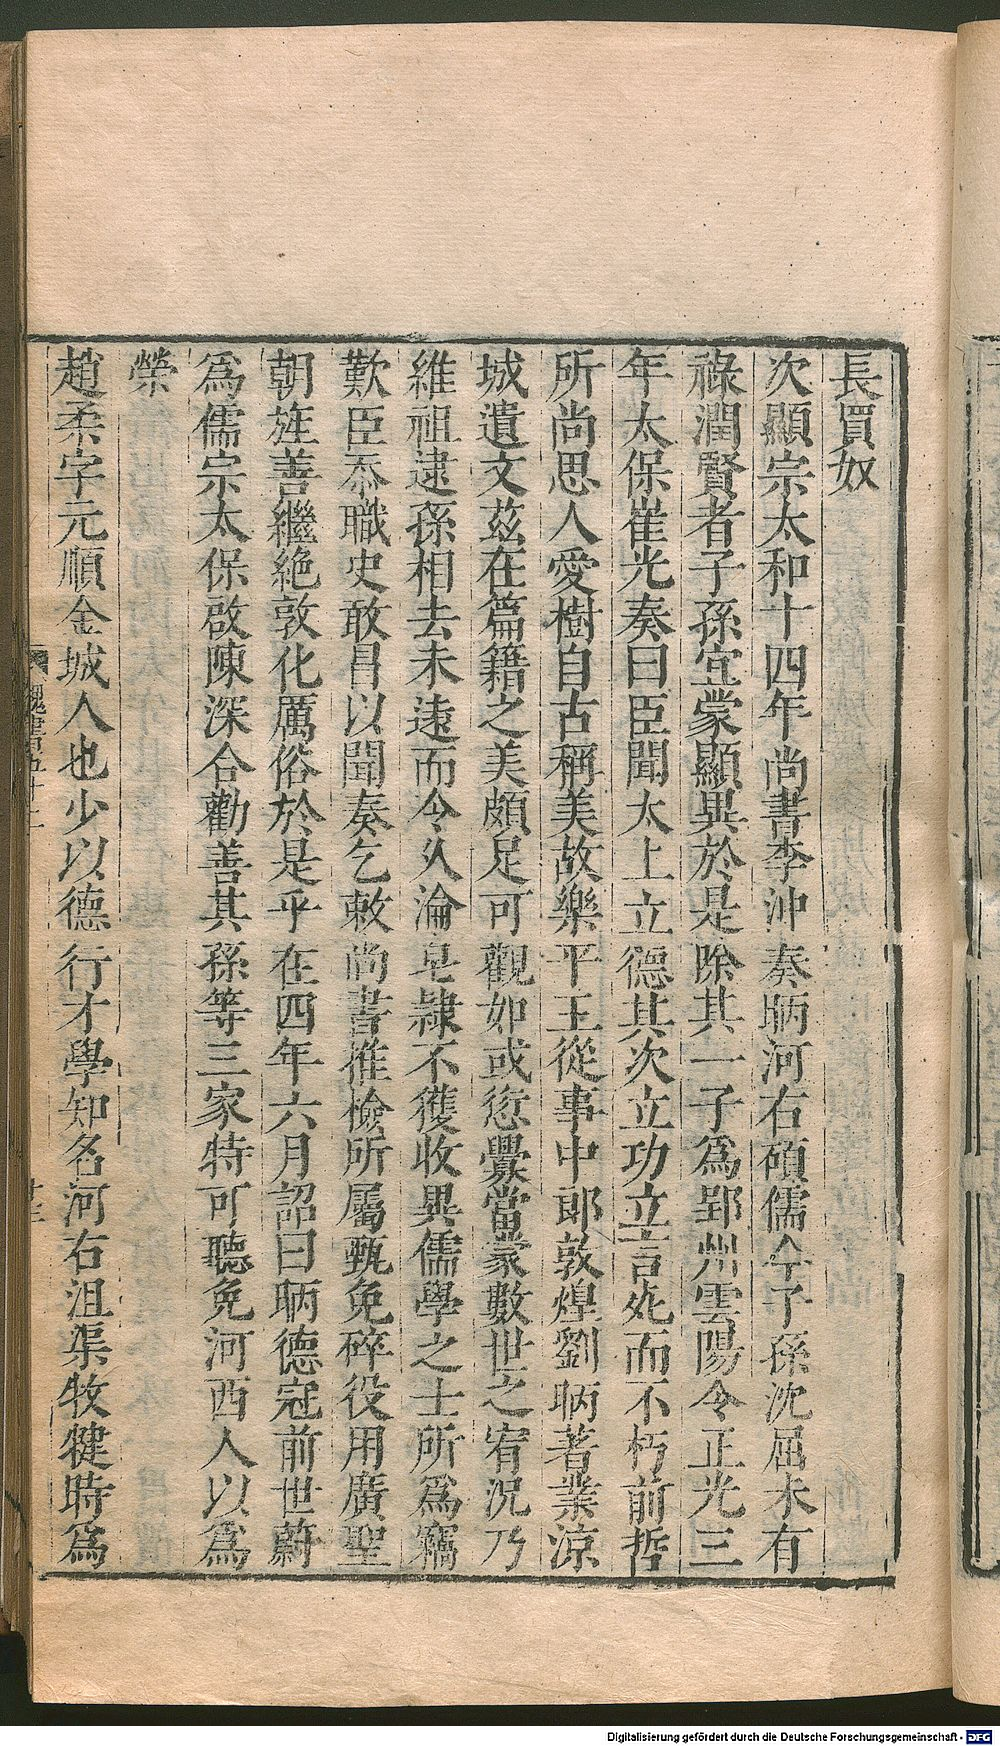 長買奴
次顯宗太和十四年尚書李沖奏昞河右碩儒今子孫沈屈未有
祿潤賢者子孫宜蒙顯異於是除其一子爲郢州雲陽令正光三
年太保崔光奏曰臣聞太上立德其次立功立言死而不朽前哲
所尚思人愛樹自古稱美故樂平王從事中郎敦煌劉昞著業涼
城遺文茲在篇籍之美頗足可觀如或愆釁當蒙數世之宥況乃
維祖逮孫相去未遠而令久淪皂隸不獲收異儒學之士所爲竊
歎臣忝職史敢昌以聞奏乞敕尚書推檢所屬甄免碎役用廣聖
朝旌善繼絶敦化厲俗於是乎在四年六月詔曰昞德冠前世蔚
爲儒宗太保啟陳深合勸善其孫等三家特可聽免河西人以爲
榮
趙柔字元順金城人也少以德行才學知名河右沮渠牧犍時爲
魏書五十二
十三
Digitalisierung gefördert durch die Deutsche Forschungsgemeinschaft - DFG